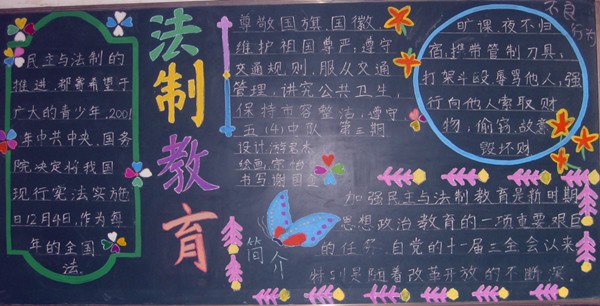 民主与法制的
推进,都寄希望于
广大的青少年,2001
年中共中央、国务
院决定将我国
现行宪法实施
日12月4日,作为每
年的全国
法.
法制教育
尊敬国旗、国徽
维护祖国尊严;遵守
交通规则,服从交通
管理,讲究公共卫生,
保持市容整洁;遵守
五(4)中队 第三期
设计:
绘画:
书写:谢
不良行为
旷课、夜不归
宿;携带管制刀具;
打架斗殴、辱骂他人;强
行向他人索取财
物;偷窃、故意
毁坏财
简介
加强民主与法制教育是新时期
思想政治教育的一项重要艰巨
的任务.自党的十一届三全会以来
特别是随着改革开放的不断深.